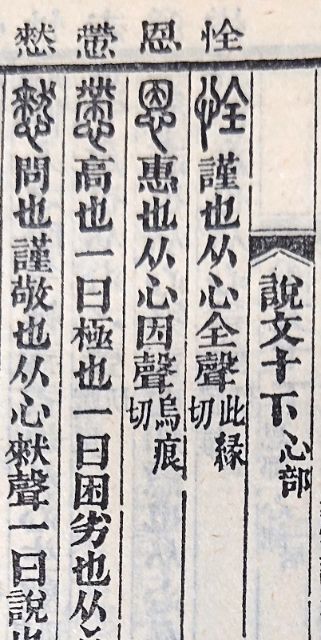 恮 恩 慸 憖
說文十下 心部
恮 謹也从心全聲此緣切
恩 惠也从心因聲烏痕切
慸 高也一曰極也一曰困劣也从
憖 問也謹敬也从心猌聲一曰說也